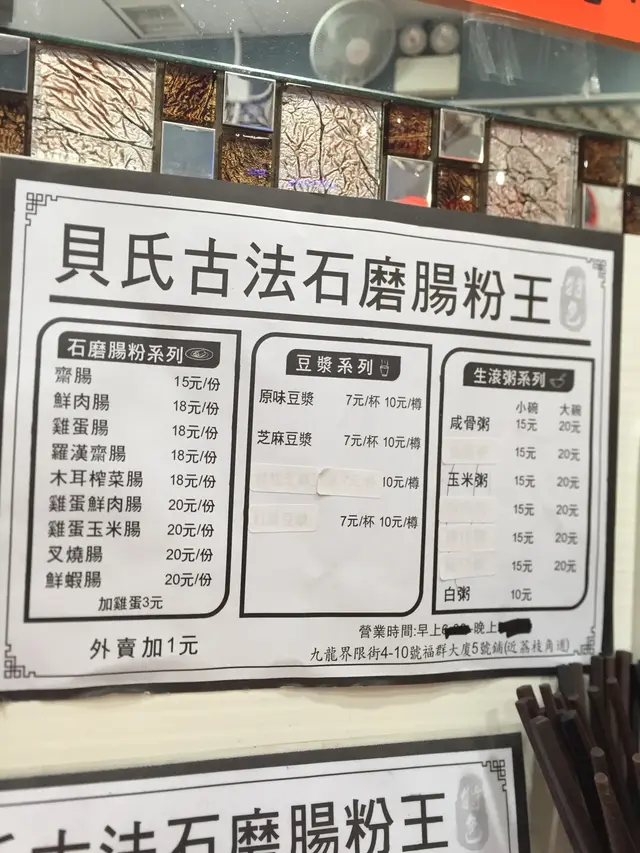 貝氏古法石磨腸粉王 特色
石磨腸粉系列
齋腸 15元/份
鮮肉腸 18元/份
雞蛋腸 18元/份
羅漢齋腸 18元/份
木耳榨菜腸 18元/份
雞蛋鮮肉腸 20元/份
雞蛋玉米腸 20元/份
叉燒腸 20元/份
鮮蝦腸 20元/份
加雞蛋3元
外賣加1元
豆漿系列
原味豆漿 7元/杯 10元/樽
芝麻豆漿 7元/杯 10元/樽
10元/樽
7元/杯 10元/樽
生滾粥系列
小碗 大碗
咸骨粥 15元 20元
15元 20元
玉米粥 15元 20元
15元 20元
15元 20元
15元 20元
白粥 10元
營業時間:早上 晚上
九龍界限街4-10號福群大廈5號鋪(近荔枝角道)
古法石磨腸粉王